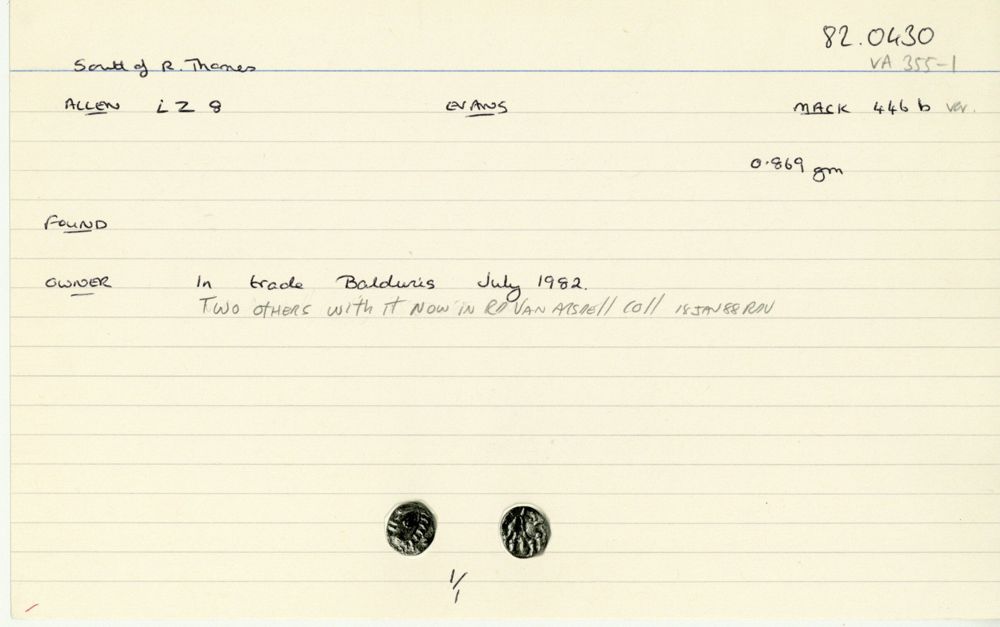 82.0430
South of R. Thames
VA 355-1
ALLEN LZ 8 EVANS MACK 446 b var.
0.869 gm
FOUND
OWNER In trade Baldwins July 1982.
TWO OTHERS WITH IT NOW IN RD VAN ARSDELL COLL 18 JAN 88 RDV
1/1